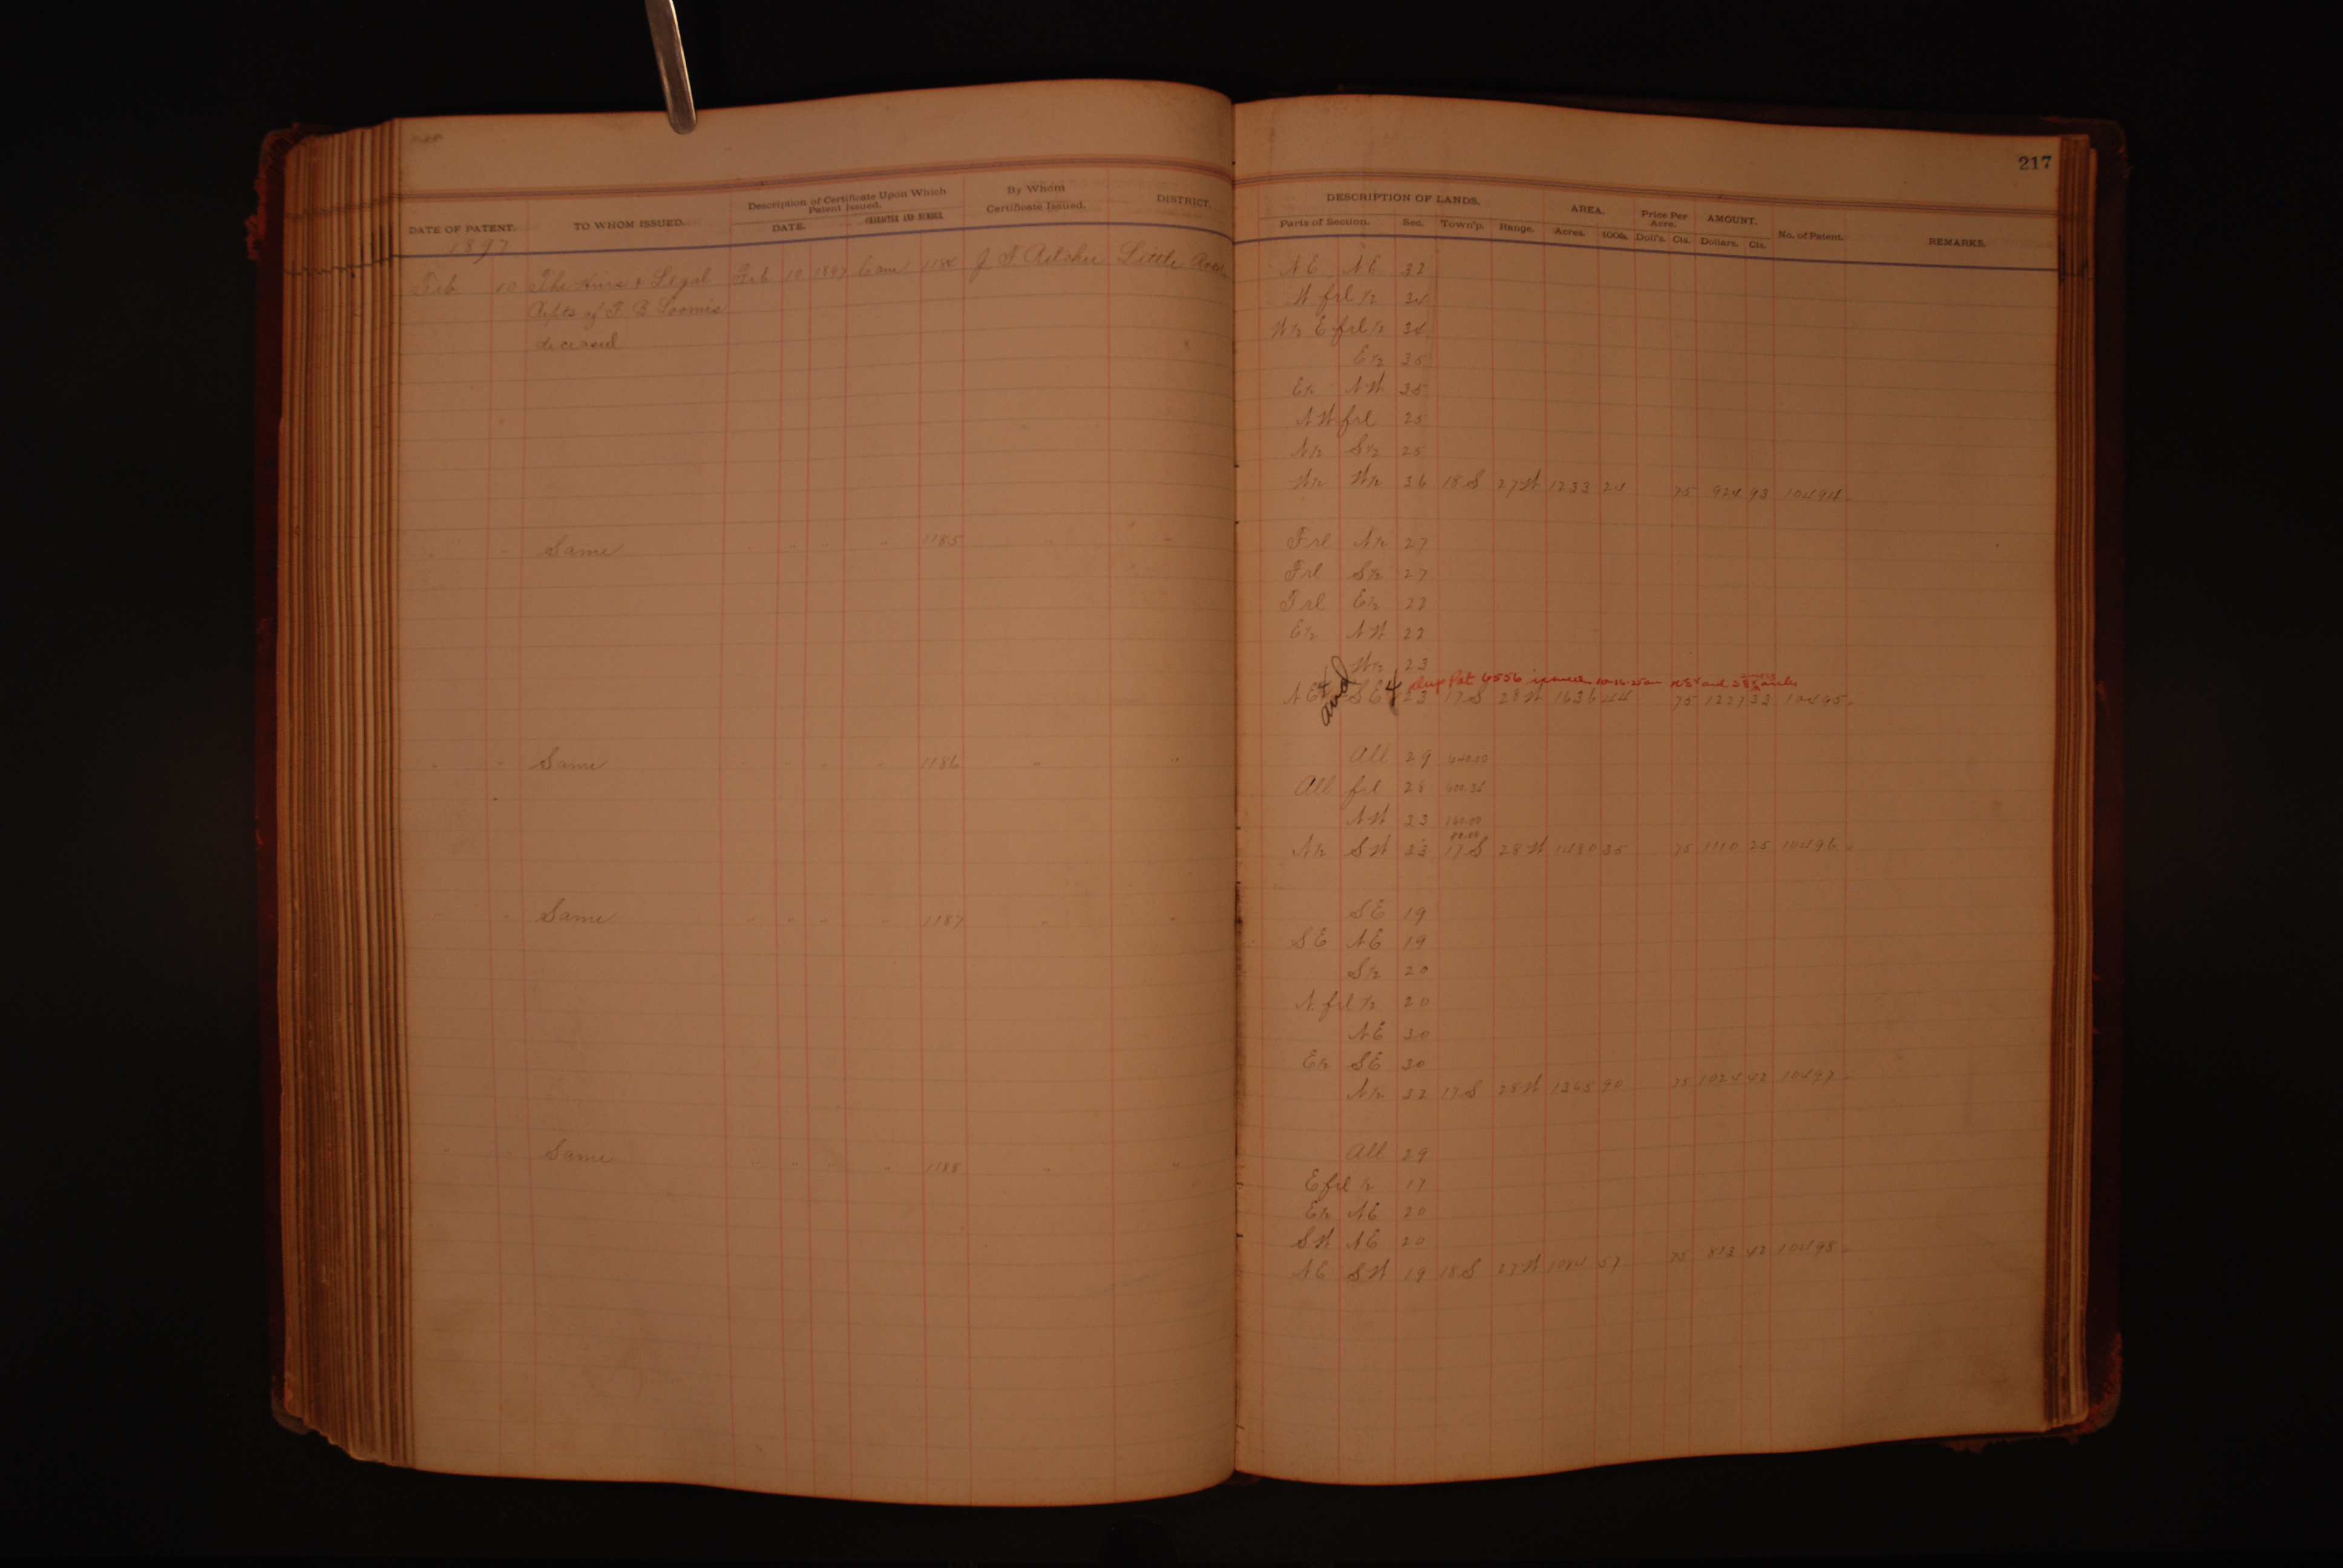 217
DATE OF PATENT. TO WHOM ISSUED. Description of Certificate Upon Which Patent Issued. DATE. CHARACTER AND NUMBER. By Whom Certificate Issued. DISTRICT. DESCRIPTION OF LANDS. Parts of Section. Sec. Town'p. Range. AREA. Acres. 100ths. Price Per Acre. Doll's. Cts. AMOUNT. Dollars. Cts. No. of Patent. REMARKS.
1897
Feb 10 The Heirs & Legal Feb 10 1897 1184 J. F. Ritchie Little NE NE 32
Repts of F. B. Loomis W frl ½ 34
deceased W½ E frl ½ 34
E½ 35
E½ NW 35
NW frl 25
N½ S½ 25
W½ W½ 36 18 S 27 W 1233 24 75 924 93 10494
" " Same " " " " 1185 " " Frl N½ 27
Frl S½ 27
Frl E½ 22
E½ NW 22
W½ 23
dup Pat 6556 issued and only
NE4 and SE4 23 17 S 28 W 1636 44 75 1227 33 10495
" " Same " " " " 1186 " " All 29 640.00
All frl 28
NW 33 160.00
80.00
N½ SW 33 17 S 28 W 1480 35 75 1110 25 10496
" " Same " " " " 1187 " " SE 19
SE NE 19
S½ 20
N. frl ½ 20
NE 30
E½ SE 30
N½ 32 17 S 28 W 1365 90 75 1024 42 10497
" " Same " " " " 1188 " " All 29
E frl ½ 17
E½ NE 20
SW NE 20
NE SW 19 18 S 27 W 1084 57 75 813 42 10498